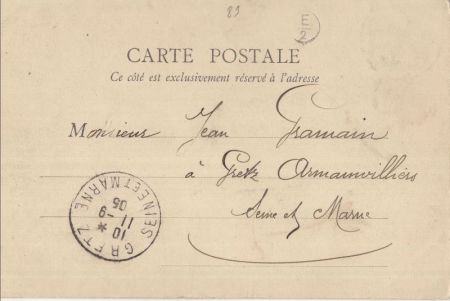 83
E
2
CARTE POSTALE
Ce côté est exclusivement réservé à l'adresse
Monsieur Jean Gramain
à Gretz Armainvilliers
Seine et Marne
GRETZ
SEINE ET MARNE
10 *
11 - 9
05